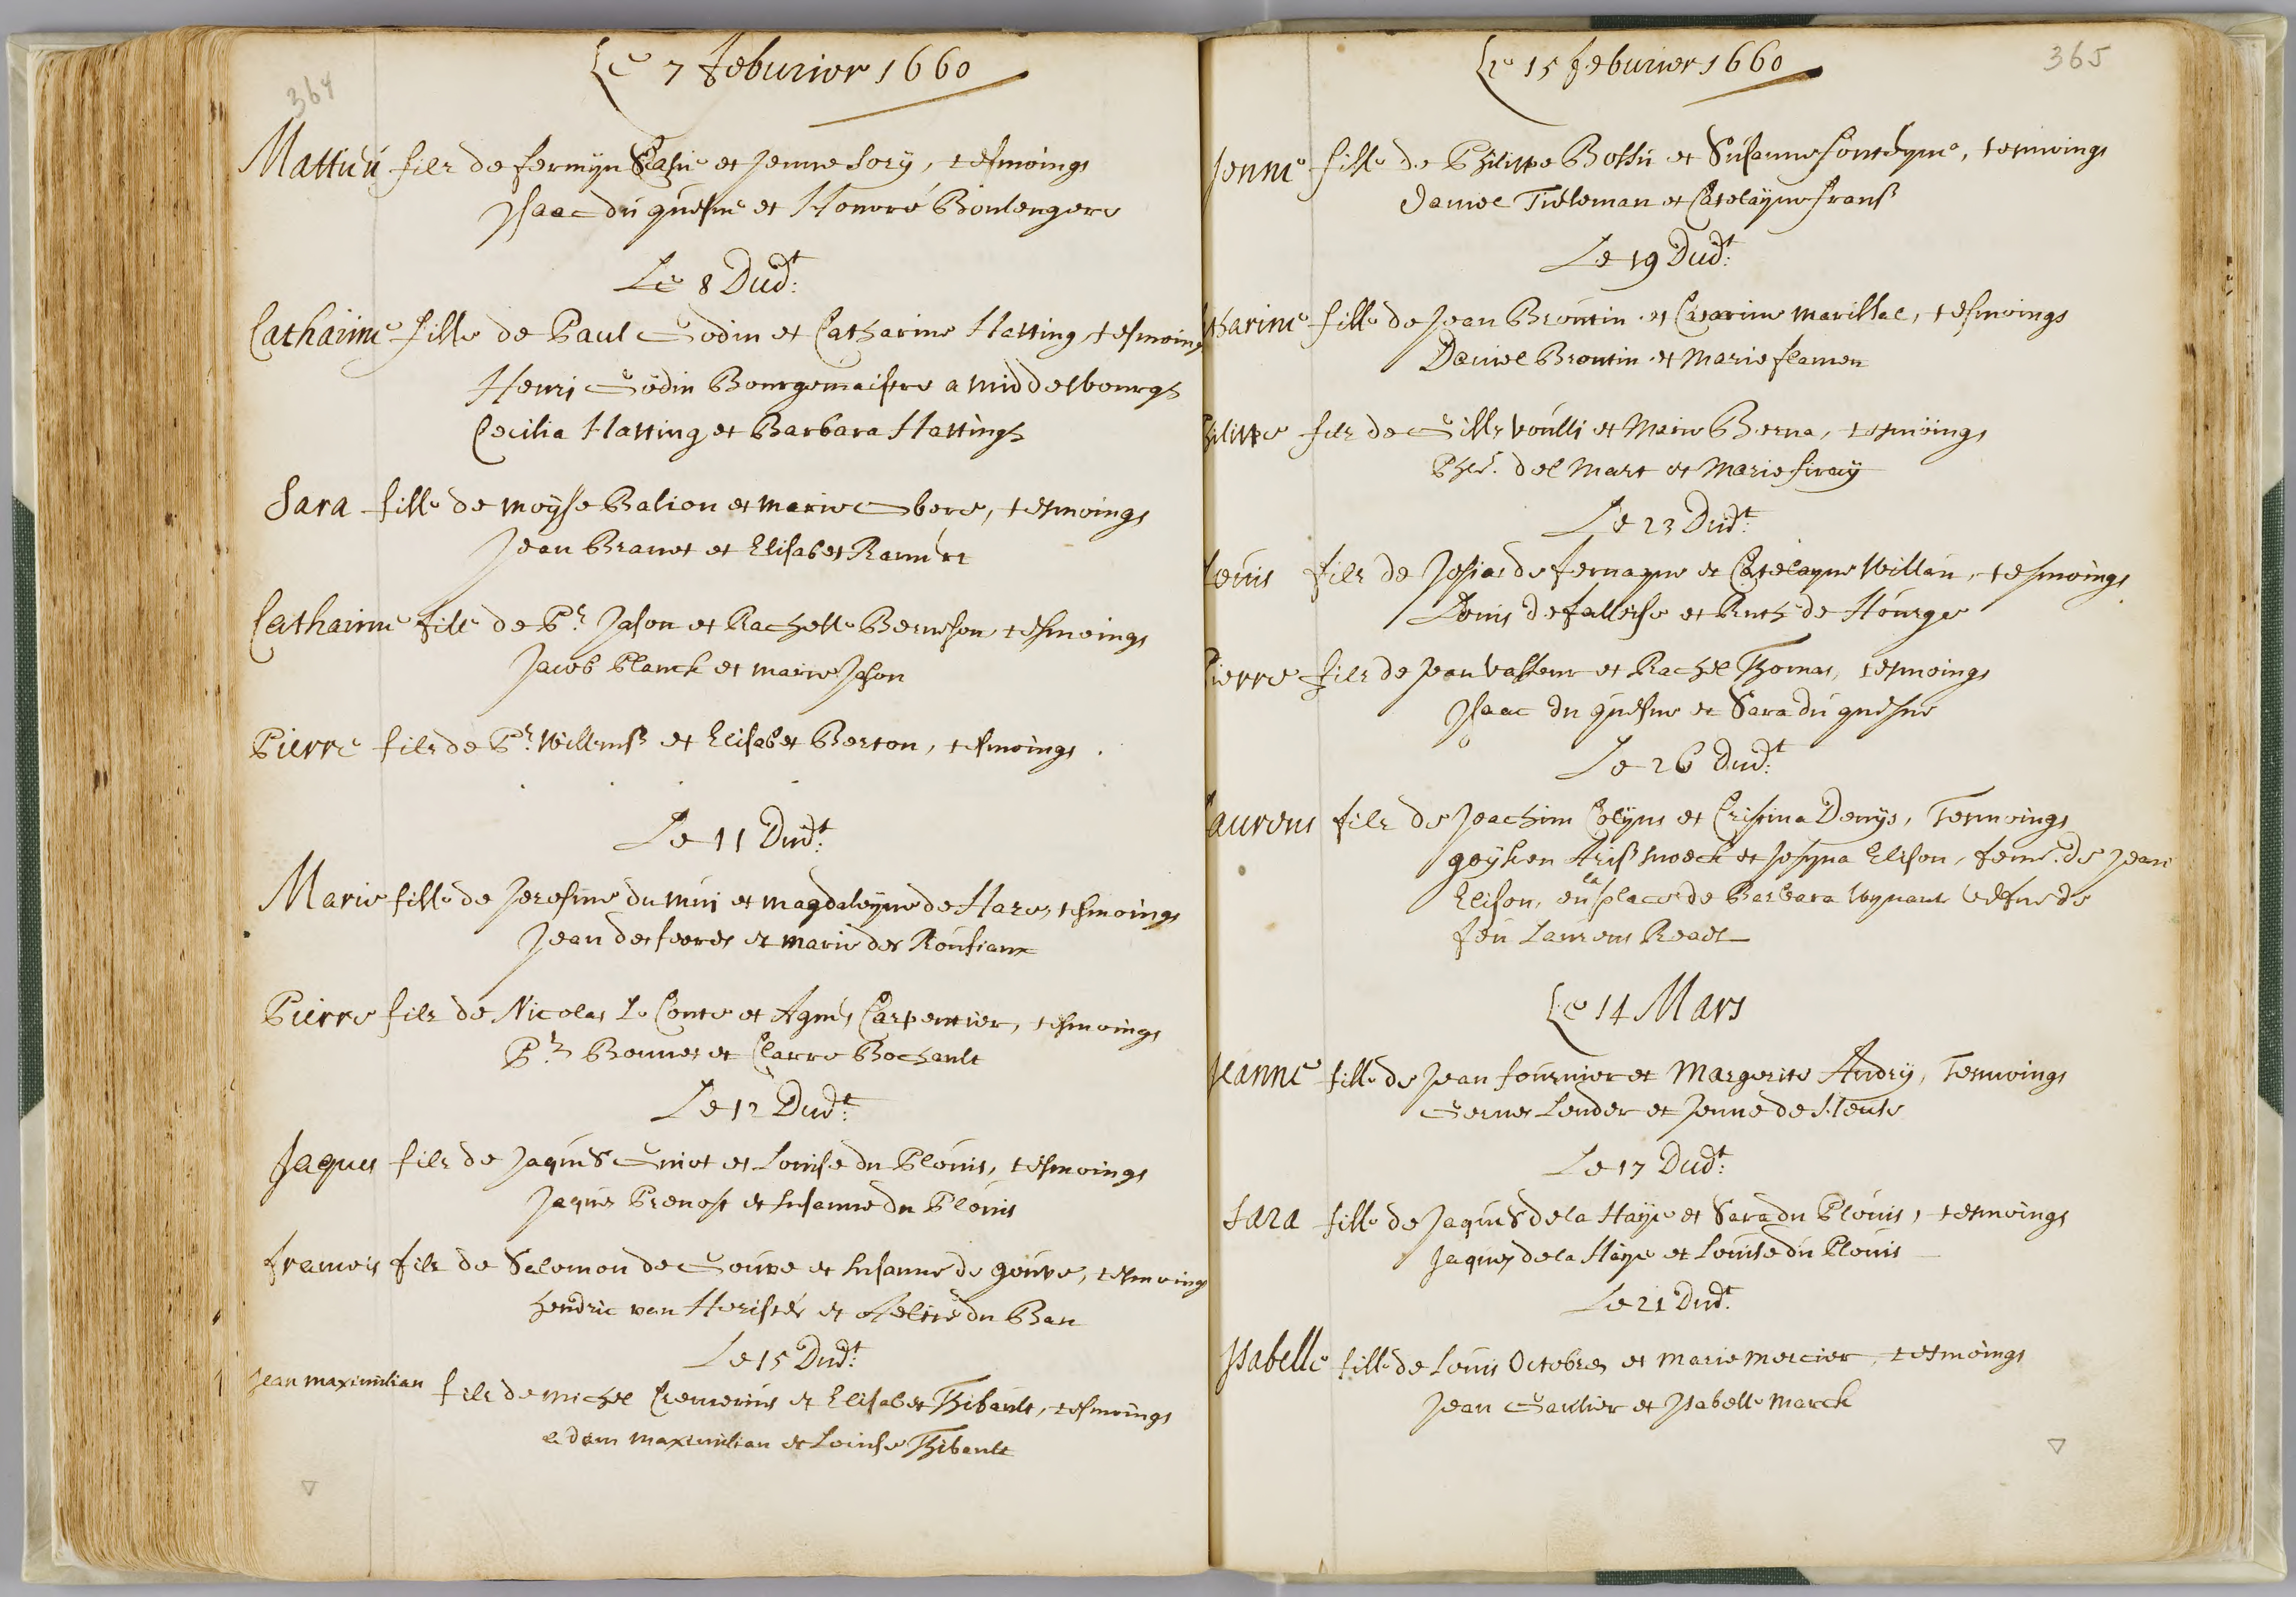 364
Le 7 feburier 1660
Mattieu filz de fermijn et Jenne Sory, tesmoings
Isaac du quesne et Honoré Boulengere
Le 8 Dudt:
Catharine fille de Paul Godin et Catharine Hatting tesmoings
Henri Godin Bourgemaistre a middelbourgh
Cecilia Hatting et Barbara Hattingh
Sara fille de moÿse Balion et marie Gbere, tesmoings
Jean Branet et Elisabet
Catharine fille de Pr. Jason et Rachelle Berneson tesmoings
Jacob Planck et marie Jason
Pierre filz de Pr. Willemsz et Elisabet Berton, tesmoings
Le 11 Dudt:
Marie fille de Jeresme du mui et magdaleyne de Hare, tesmoings
Jean des feeres et marie des Rousiaux
Pierre filz de Nicolas Le Conte et Agnes Carpentier, tesmoings
Pr. Bonnet et Clarre Bochault
Le 12 Dudt:
Jaques filz de Jaques Guiot et Louise du Plouis, tesmoings
Jaques Prevost et Susanne du Plouis
francois filz de Salomon de Gouve et Susanne de gouve, tesmoings
hendric van Heristér et Aeltie du Ban
Le 15 Dudt:
Jean maximilian filz de michel Cremerius et Elisabet Thibault, tesmoings
adam maximilian et Louise Thibault
365
Le 15 feburier 1660
Jenne fille de Philippe Bossu et Susanne fonteyne, tesmoings
Daniel Tieleman et Catelayne fransz
Le 19 Dudt:
tharine fille de Jean Brontin et Catarine marillac, tesmoings
Daniel Brontin et Marie flamen
Philippe filz de Gille voulli et Marie Berna, tesmoings
Phle. del Mart et Marie firaÿ
Le 23 Dudt:
Louis filz de Josias de fernagne et Catelayne Willau, tesmoings
Louis de falloise et Ruth de Hourge
Pierre filz de Jean Vasseur et Rachel Thomas, tesmoings
Isaac du quesne et Sara du quesne
Le 26 Dudt:
Laurens filz de Joachim Colijns et Cristina Denijs, Tesmoings
goijken Arissz et Josyna Elison, feme. de Jean
Elison, en la place de Barbara Wynants vefue de
feu Laurens Reael
Le 14 Mars
Jeanne fille de Jean fournier et Margerite Andrÿ, Tesmoings
Gernes Lender et Jenne de Heule
Le 17 Dudt:
Sara fille de Jaques de la Haÿe et Sara du Plouis, tesmoings
Jaques de la Haÿe et Louise du Plouis
Le 21 Dudt:
Isabelle fille de Louis Octobre et marie mercier, tesmoings
Jean Gaultier et Isabelle Marck